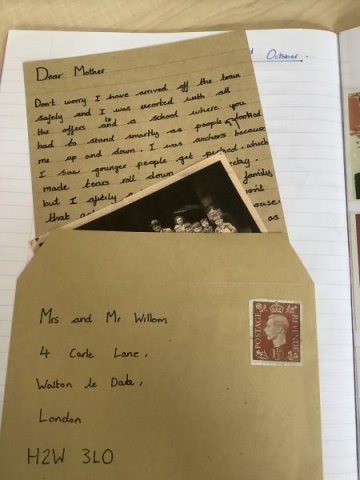 October.
Dear Mother
Don't worry I have arrived off the train
safely and I was escorted with all
the others to a school where you
had to stand smartly as people looked
me up and down. I was anchors because
I saw younger people get picked, which
made tears roll down
but I
that
Mrs and Mr Willom
4 Carle Lane,
Walton le Dale,
London
H2W 3LO
POSTAGE
REVENUE
1½